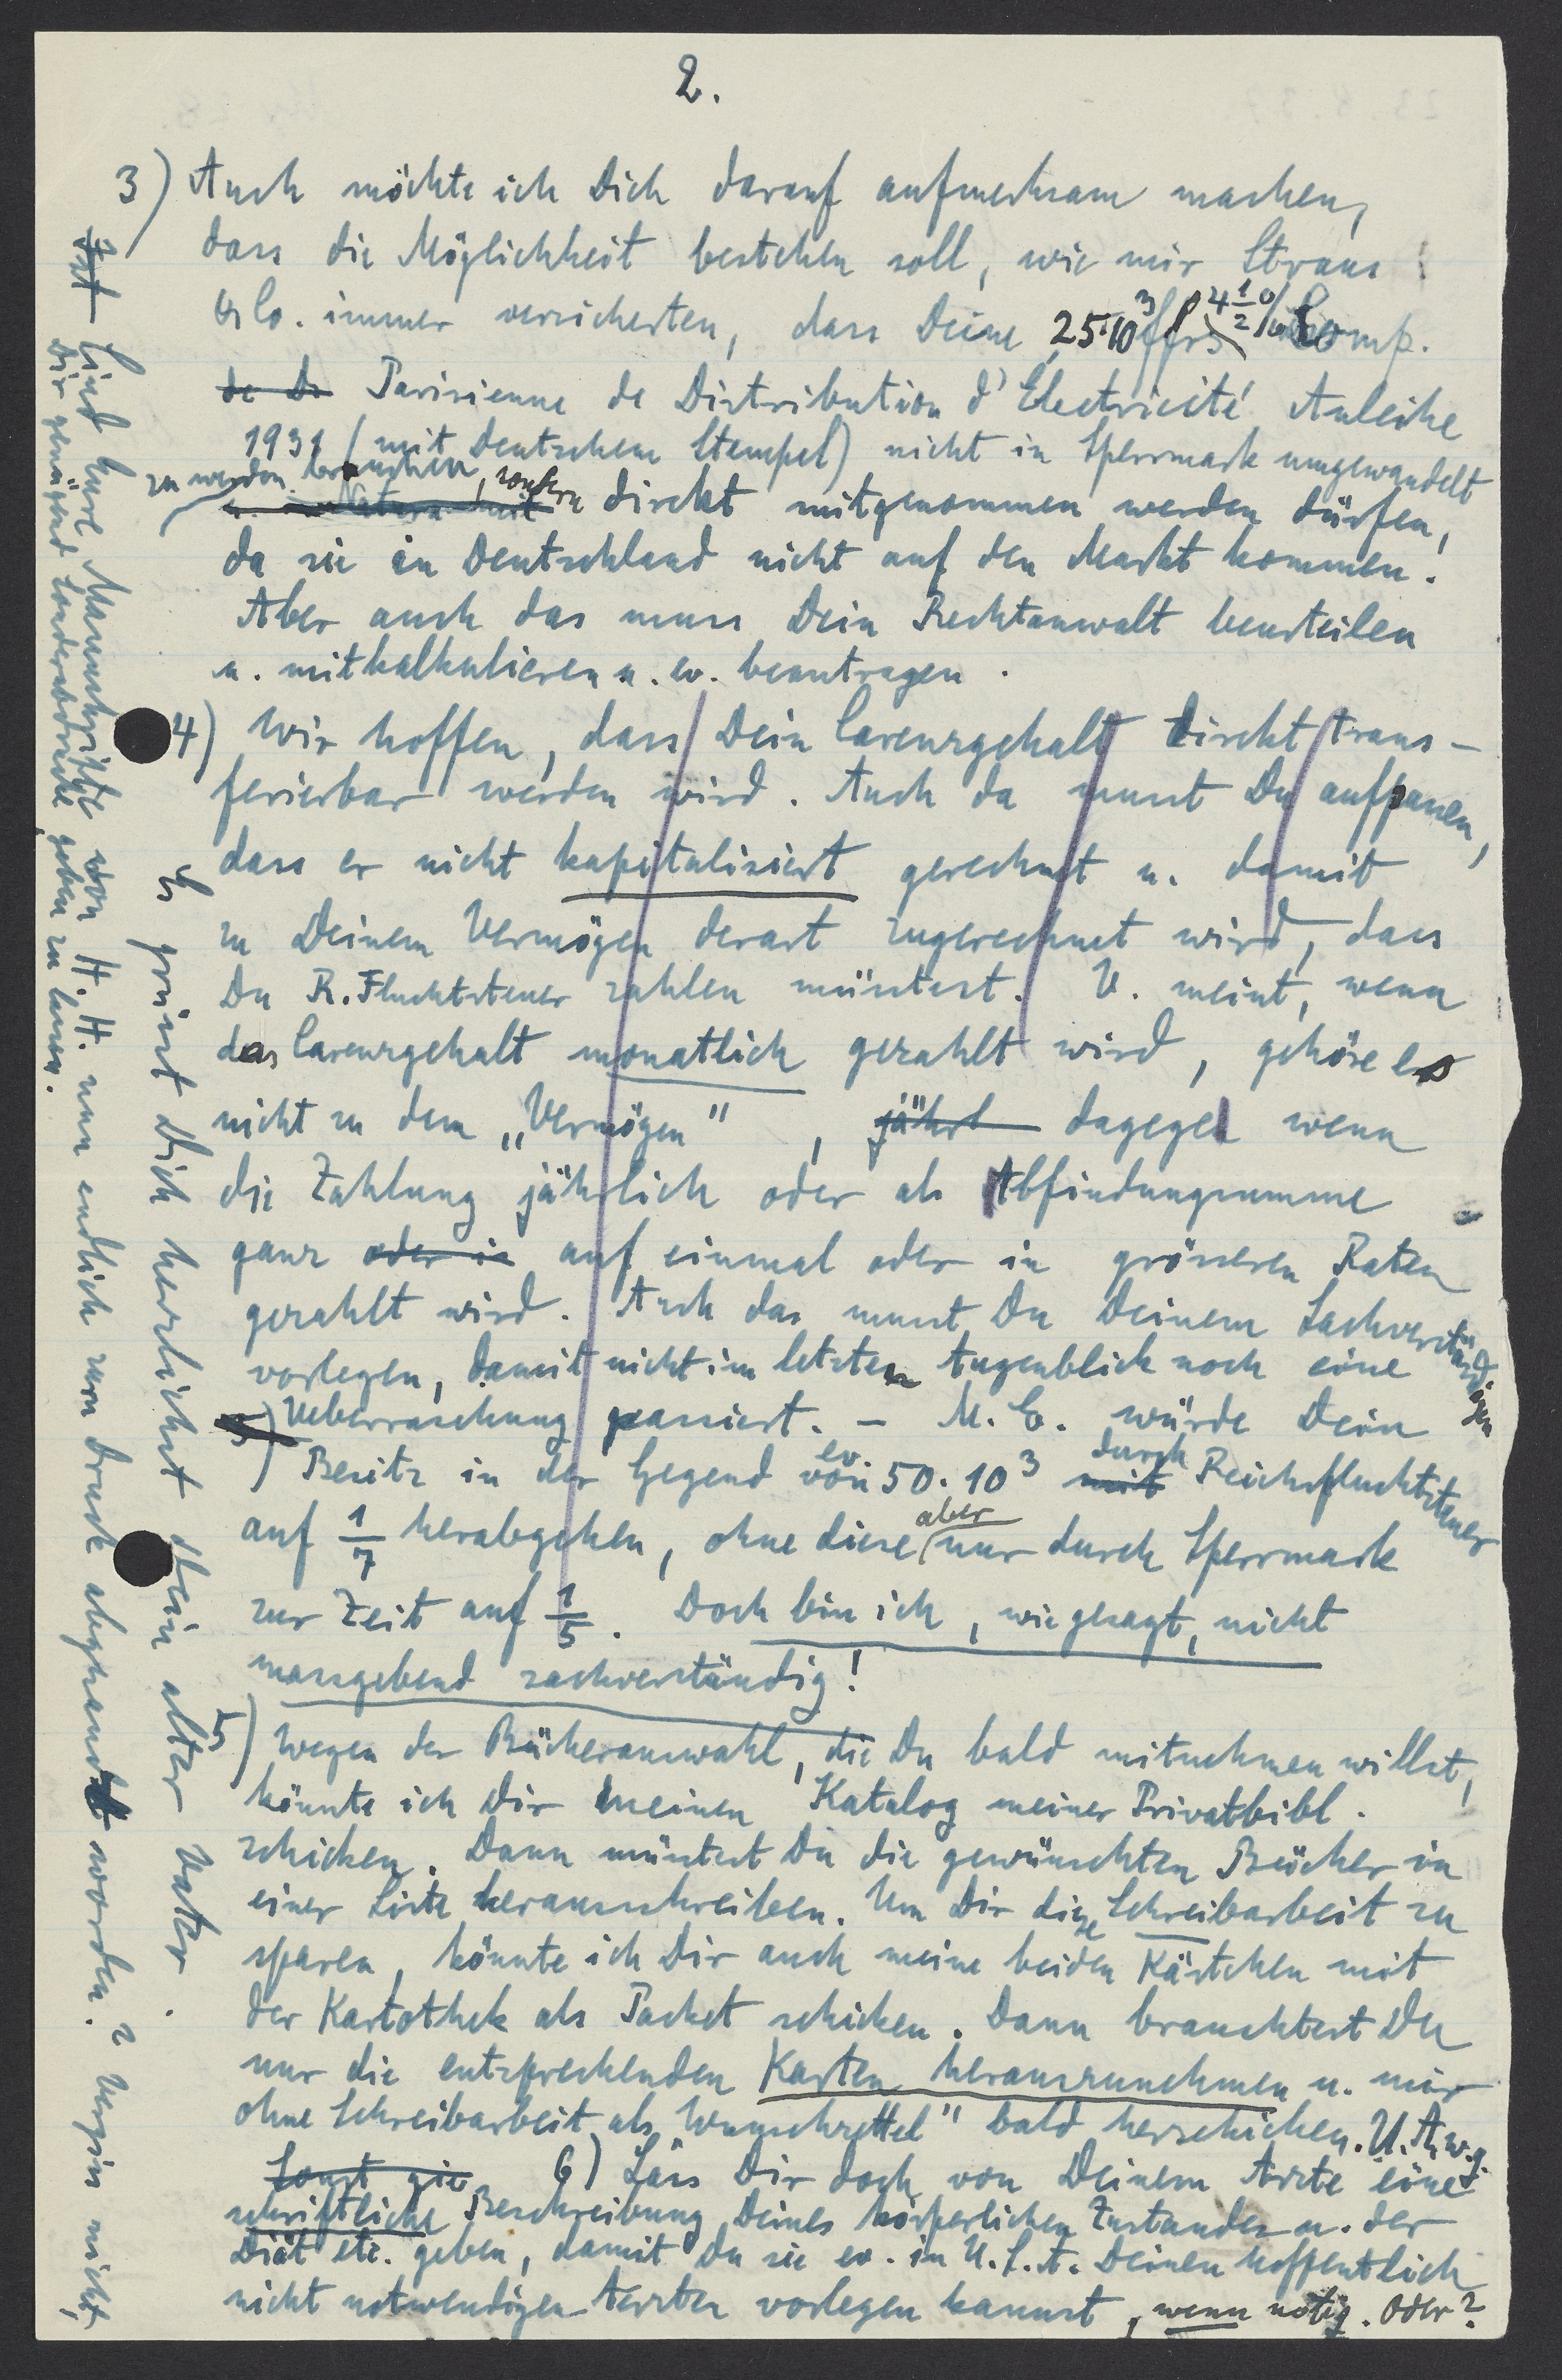 2.
3) Auch möchte ich Dich darauf aufmerksam machen,
dass die Möglichkeit bestehen soll, wie mir Straus
& Co. immer versicherten, dass Deine 25·10³ ffrs 4 1/2 % Comp.
de D. Parisienne de Distribution d'Electricité Anleihe
1931 (mit deutschem Stempel) nicht in Sperrmark umgewandelt
zu werden brauchen, sondern direkt mitgenommen werden dürfen,
da sie in Deutschland nicht auf den Markt kommen.
Aber auch das muss Dein Rechtanwalt beurteilen
u. mitkalkulieren u. ev. beantragen.
4) Wir hoffen, dass Dein Carenzgehalt direkt trans-
ferierbar werden wird. Auch da musst Du aufpassen,
dass er nicht kapitalisiert gerechnet u. damit
zu Deinem Vermögen derart zugerechnet wird, dass
Du R. Fluchtsteuer zahlen müsstest. V. meint, wenn
das Carenzgehalt monatlich gezahlt wird, gehöre es
nicht zu dem „Vermögen", jährl dagegen wenn
die Zahlung jährlich oder als Abfindungssumme
ganz oder in auf einmal oder in grösseren Raten
gezahlt wird. Auch das musst Du Deinem Sachverständigen
vorlegen, damit nicht im letzten Augenblick noch eine
Ueberraschung passiert. – M. E. würde Dein
Besitz in der Gegend von ev 50·10³ mit durch Reichsfluchtsteuer
auf 1/7 herabgehen, ohne diese aber nur durch Sperrmark
zur Zeit auf 1/5. Doch bin ich, wie gesagt, nicht
massgebend sachverständig!
5) Wegen der Bücherauswahl, die Du bald mitnehmen willst,
könnte ich Dir meinen Katalog meiner Privatbibl.
schicken. Dann müsstest Du die gewünschten Bücher in
einer Liste herausschreiben. Um Dir diese Schreibarbeit zu
sparen, könnte ich Dir auch meine beiden Kästchen mit
der Kartothek als Packet schicken. Dann brauchtest Du
nur die entsprechenden Karten herauszunehmen u. mir
ohne Schreibarbeit als „Wunschzettel" bald herschicken. U. A. w. g.
Sonst gie 6) Lass Dir doch von Deinem Arzte eine
schriftliche Beschreibung Deines körperlichen Zustandes u. der
Diät etc. geben, damit Du sie ev. in U.S.A. Deinen hoffentlich
nicht notwendigen Aerzten vorlegen kannst, wenn nötig. Oder?
Es grüsst Dich herzlichst Dein alter Vater.
Ist Sind Eure Manuskripte von H. H. nun endlich zum Druck abgesandt worden? Vergiss nicht,
Dir genügend Sonderabdrücke geben zu lassen.